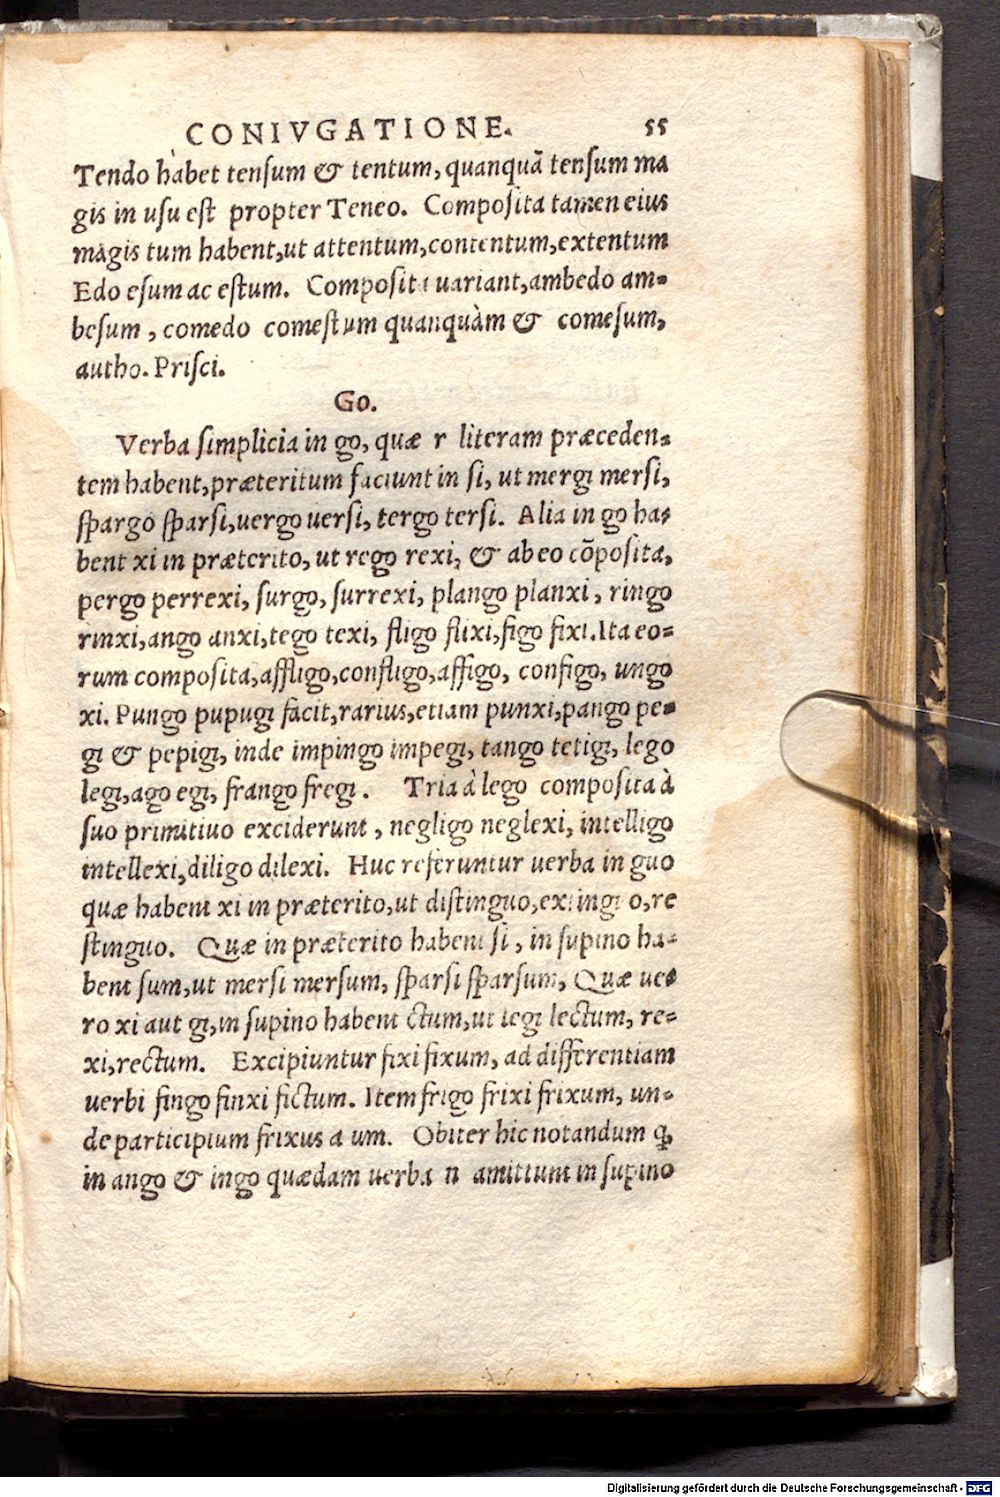 CONIVGATIONE. 55
Tendo habet tensum & tentum, quanquã tensum ma
gis in usu est propter Teneo. Composita tamen eius
magis tum habent, ut attentum, contentum, extentum
Edo esum ac estum. Composita uariant, ambedo am-
besum, comedo comestum quanquàm & comesum,
autho. Prisci.
Go.
Verba simplicia in go, quæ r literam præceden-
tem habent, præteritum faciunt in si, ut mergi mersi,
spargo sparsi, uergo uersi, tergo tersi. Alia in go ha-
bent xi in præterito, ut rego rexi, & ab eo cõposita,
pergo perrexi, surgo, surrexi, plango planxi, ringo
rinxi, ango anxi, tego texi, fligo flixi, figo fixi. Ita eo-
rum composita, affligo, confligo, affigo, configo, ungo
xi. Pungo pupugi facit, rarius, etiam punxi, pango pe-
gi & pepigi, inde impingo impegi, tango tetigi, lego
legi, ago egi, frango fregi. Tria à lego composita à
suo primitiuo exciderunt, negligo neglexi, intelligo
intellexi, diligo dilexi. Huc referuntur uerba in guo
quæ habent xi in præterito, ut distinguo, extinguo, re
stinguo. Quæ in præterito habent si, in supino ha-
bent sum, ut mersi mersum, sparsi sparsum, Quæ ue-
ro xi aut gi, in supino habent ctum, ut legi lectum, re-
xi, rectum. Excipiuntur fixi fixum, ad differentiam
uerbi fingo finxi fictum. Item frigo frixi frixum, un-
de participium frixus a um. Obiter hic notandum ꝙ
in ango & ingo quædam uerba n amittunt in supino
Digitalisierung gefördert durch die Deutsche Forschungsgemeinschaft - DFG